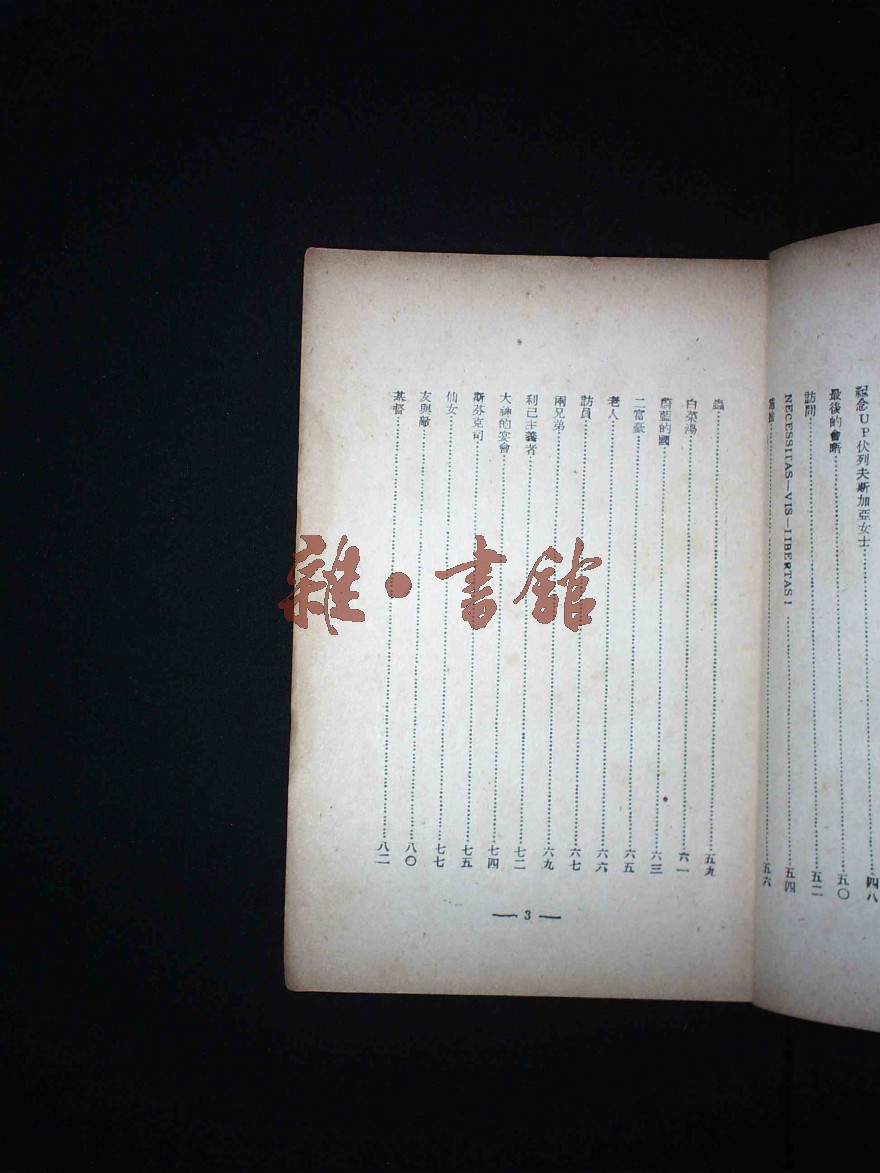 紀念UP伏列夫斯加亞女士……四八
最後的會晤……五〇
訪問……五二
NECESSITAS—VIS—LIBERTAS I……五四
……五六
蟲……五九
白菜湯……六一
蔚藍的國……六三
二富豪……六五
老人……六六
訪員……六七
兩兄弟……六九
利己主義者……七二
大神的宴會……七四
斯芬克司……七五
仙女……七七
友與敵……八〇
基督……八二
— 3 —
雜·書館